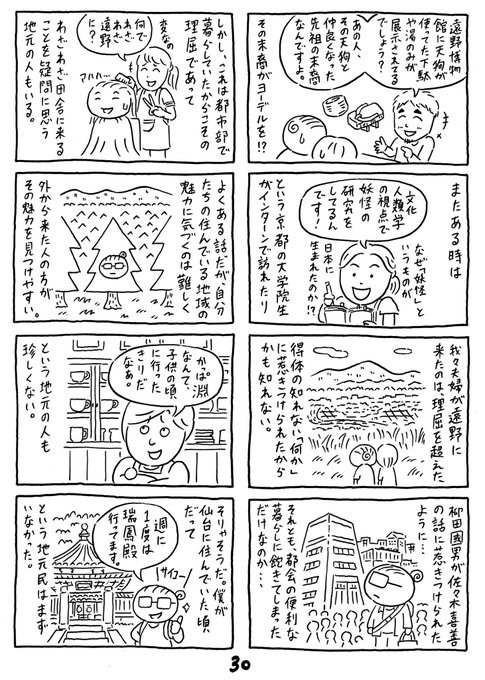 遠野博物
館に天狗が
使ってた下駄
や湯のみが
展示されてる
でしょう??
あの人、
その天狗と
仲良くなった
先祖の末裔
なんですよ。
その末裔がヨーデルを!?
またある時は
文化
人類学
の視点で
妖怪の
研究を
してるん
です!
なぜ「妖怪」と
いうものが
日本に
生まれたのか!?
という京都の大学院生
がインターンで訪れたり
我々夫婦が遠野に
来たのは理屈を超えた
得体の知れない「何か」
に惹きつけられたから
かも知れない。
柳田國男が佐々木喜善
の話に惹きつけられた
ように…
それとも、都会の便利な
暮らしに飽きてしまった
だけなのか…
しかし、これは都市部で
暮らしていたからこその
理屈であって
変なの
何で
わざ
わざ
遠野
に?
アハハ
わざわざ田舎に来る
ことを疑問に思う
地元の人もいる。
よくある話だが、自分
たちの住んでいる地域の
魅力に気づくのは難しく
外から来た人の方が
その魅力を見つけやすい。
かっぱ淵
なんて、
子供の頃
に行った
きりだ
なぁ。
という地元の人も
珍しくない。
そりゃそうだ。僕が
仙台に住んでいた頃
だって
週に
1度は
瑞鳳殿
行ってます。
サイコー
という地元民はまず
いなかった。
30